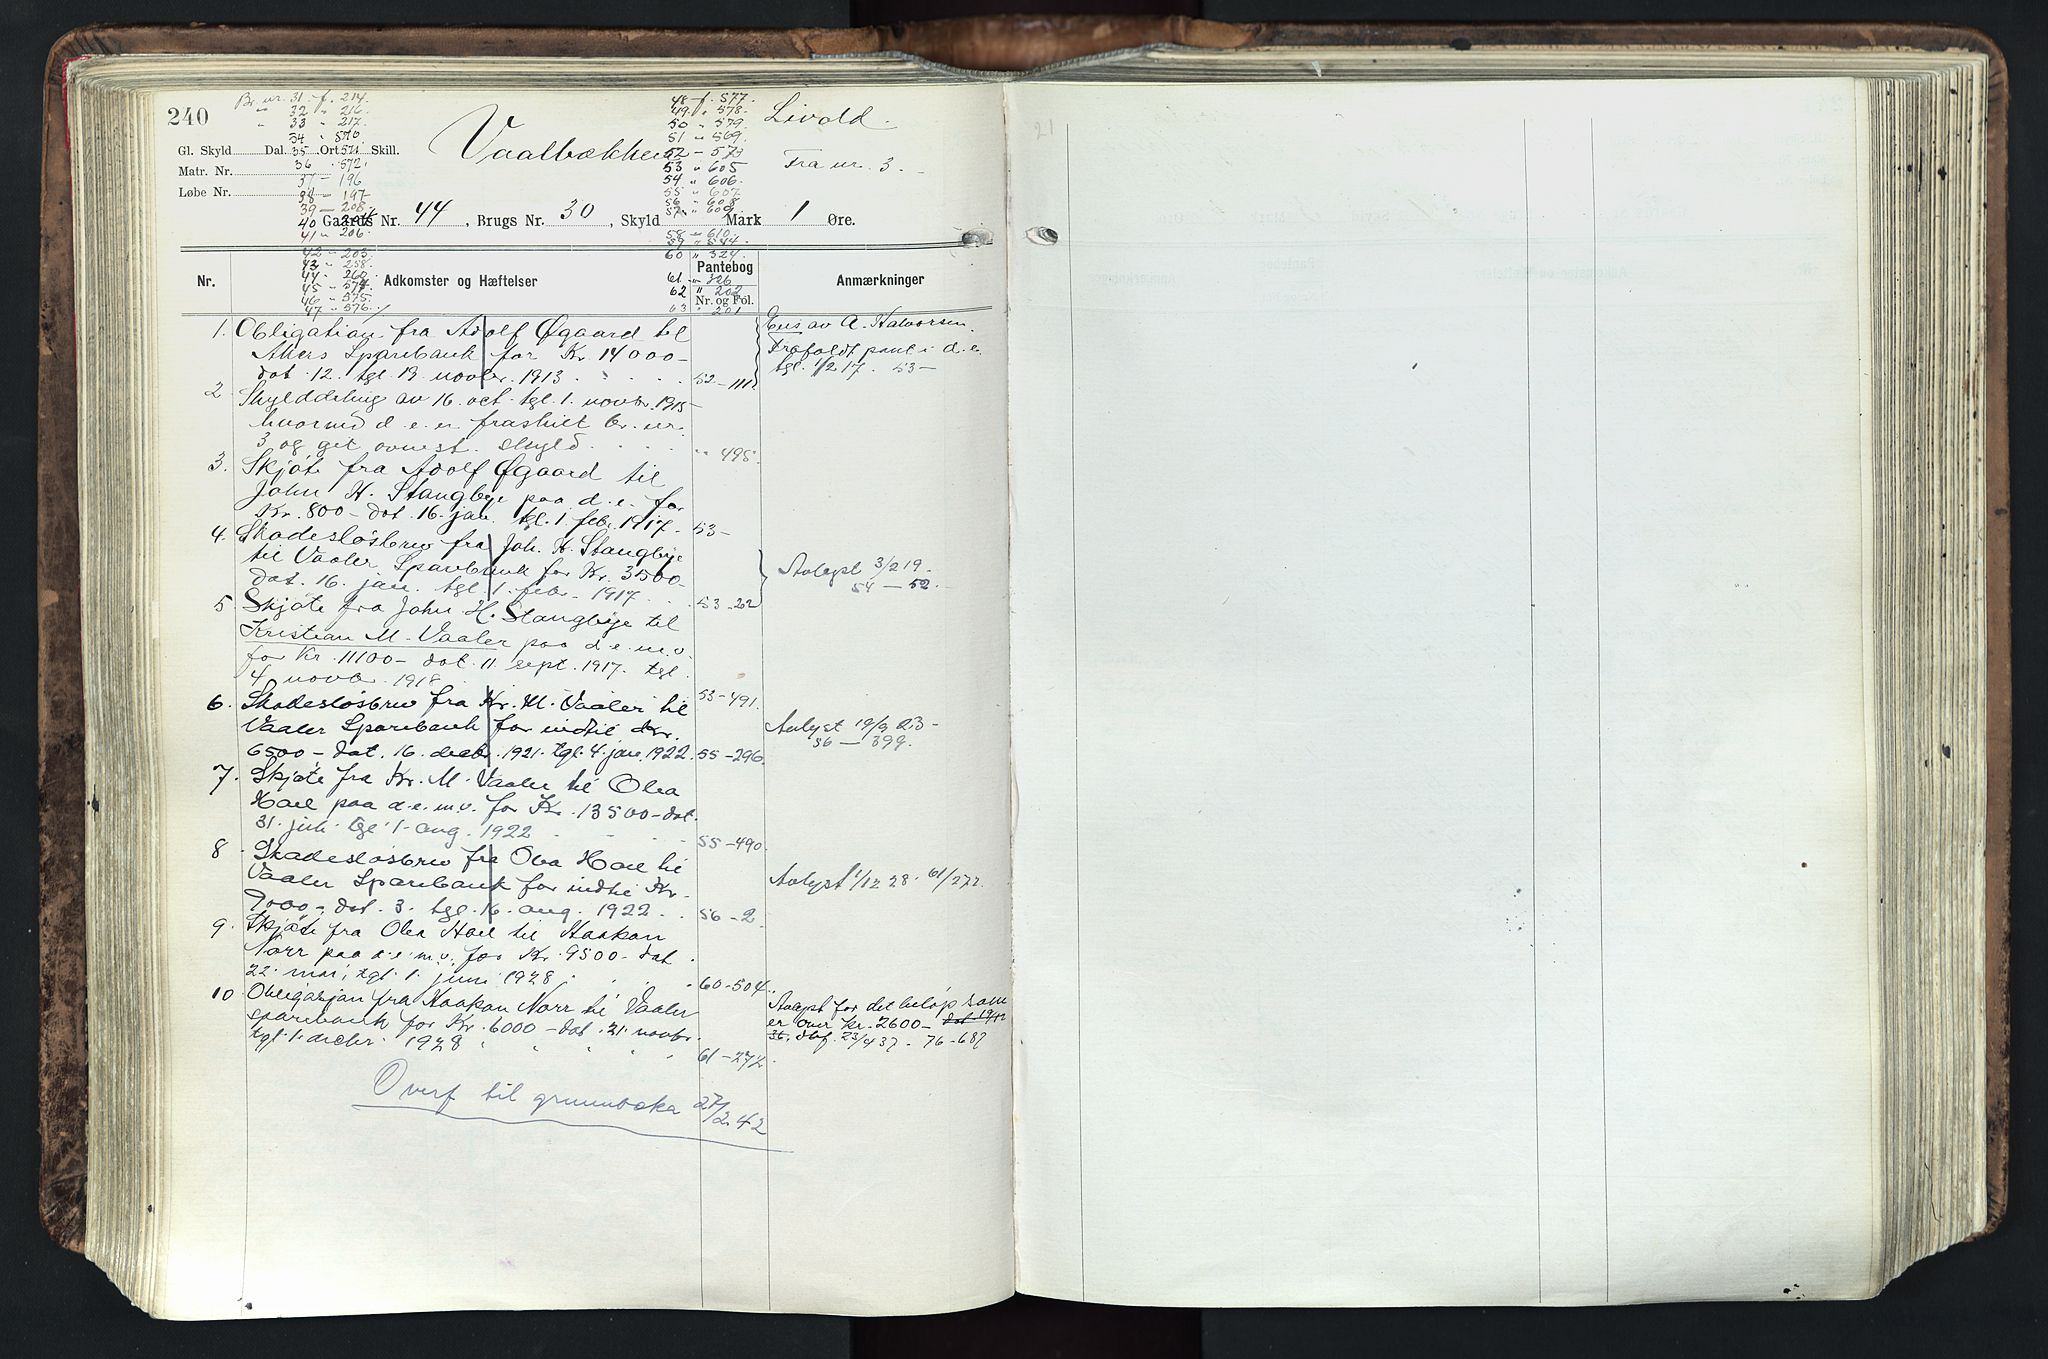 240
Br. nr. 31 - f. 214.
" 32 " 216
" 33 " 217.
34 " 570
35 " 571
36 " 572.
37 - 196
38 - 197
39 - 208
40
41 " 206.
42 - 203
43 " 258.
44 " 260
45 " 574
46 " 575.
47 " 576
48 - f. 577.
49 " 578.
50 " 579
51 " 569.
52 - 573
53 " 605
54 " 606.
55 " 607
56 " 608
57 " 609
58 " 610.
59 " 544.
60 " 324
61 " 326
62 " 202
63 " 201
Gl. Skyld Dal. Ort Skill.
Matr. Nr.
Løbe Nr.
Vaalbækken
Livold.
Fra nr. 3.
Gaards Nr. 44, Brugs Nr. 30, Skyld Mark 1 Øre.
Nr. Adkomster og Hæftelser Pantebog Nr. og Fol. Anmærkninger
1. Obligation fra Adolf Øgaard til
Akers Sparebank for Kr. 14000-
dat. 12. tgl. 19. novbr. 1913. 52-111.
av A. Halvorsen.
Frafaldt pant i d.e.
tgl. 1/2 17. 53-
2 Skylddeling av 16. oct. tgl. 1. novbr. 1915-
hvorved d.e. er fraskilt br. nr.
3 og git ovnevnt. skyld " 495.
3. Skjøte fra Adolf Øgaard til
John H. Stangbye paa d.e. for
Kr. 800- dat. 16. jan. tgl. 1. febr. 1917. 53-
4. Skadesløsbrev fra Joh. H. Stangbye
til Vaaler Sparebank for Kr. 3500-
dat. 16. jan. tgl. 1. febr. 1917. 53-22
Avlyst 3/2 19.
54 - 52.
5. Skjøte fra John H. Stangbye til
Kristian M. Vaaler paa d.e.m.v.
for Kr. 11100- dat. 11. sept. 1917. tgl.
4 novbr. 1918. 53-491.
6. Skadesløsbrev fra Kr. M. Vaaler til
Vaaler Sparebank for indtil Kr.
6500- dat. 16. decbr. 1921. tgl. 4. jan. 1922. 55-296.
Avlyst 19/9 23-
56 - 399.
7. Skjøte fra Kr. M. Vaaler til Olea
Hoel paa d.e.m.v. for Kr. 13500- dat.
31. juli tgl. 1. aug. 1922 55-490.
8. Skadesløsbrev fra Olea Hoel til
Vaaler Sparebank for indtil Kr.
9000-, dat. 3. tgl. 16. aug. 1922. 56-2.
Avlyst 1/12 28. 61/272.
9. Skjøte fra Olea Hoel til Haakon
Norr paa d.e.m.v. for Kr. 9500- dat.
22. mai, tgl. 1. juni 1928. 60-504.
10 Obligasjon fra Haakon Norr til Vaaler
sparebank for Kr. 6000- dat. 21. novbr.
tgl. 1. decbr. 1928 61-272.
Avlyst for det beløp som
er over kr. 2600-
23/4 37. 76-687
Overf til grunnboka 27/2 42
21